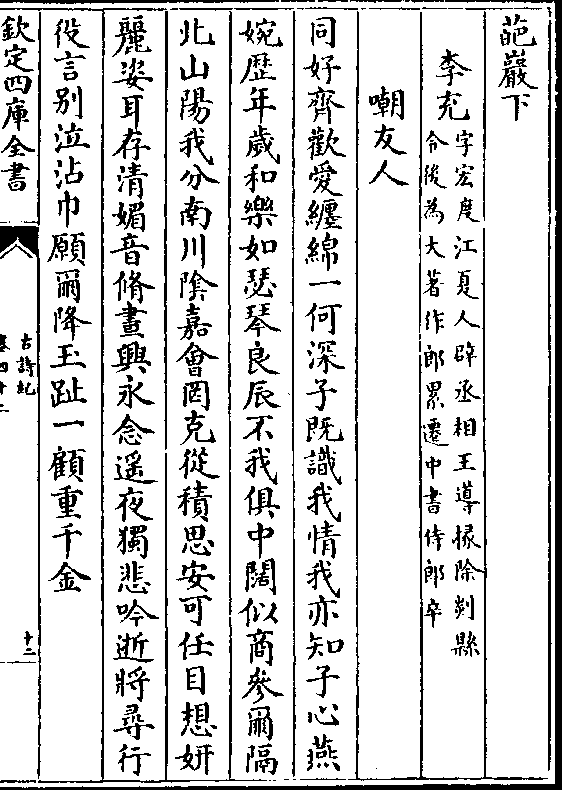 葩巖下
李充字宏度江夏人辟丞相王導掾除剡縣
令後為大著作郎累遷中書侍郎卒
嘲友人
同好齊歡愛纏綿一何深子既識我情我亦知子心燕
婉歴年歳和樂如瑟琴良辰不我俱中闊似商參爾隔
北山陽我分南川隂嘉會罔克從積思安可任目想妍
麗姿耳存清媚音脩晝興永念遥夜獨悲吟逝將尋行
役言别泣沾巾願爾降玉趾一顧重千金
欽定四庫全書
古詩紀
卷四十二
十二